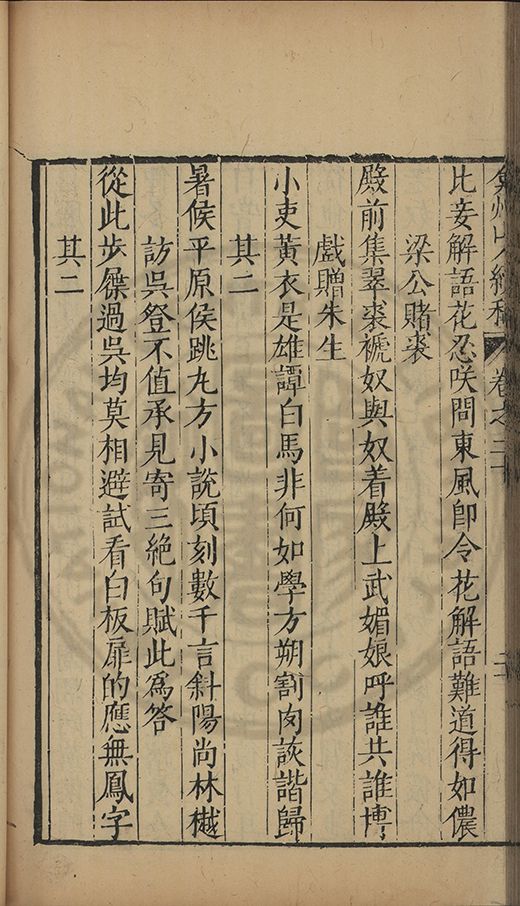 弇州山人續稿 卷之二十
比妾解語花忍咲問東風卽令花解語難道得如儂
梁公賭裘
殿前集翠裘褫奴與奴着殿上武媚娘呼誰共誰博
戲贈朱生
小吏黃衣是雄譚白馬非何如學方朔割肉詼諧歸
其二
暑候平原侯跳丸方小說頃刻數千言斜陽尚林樾
訪吳登不值承見寄三絕句賦此爲答
從此步屧過吳均莫相避試看白板扉的應無鳳字
其二